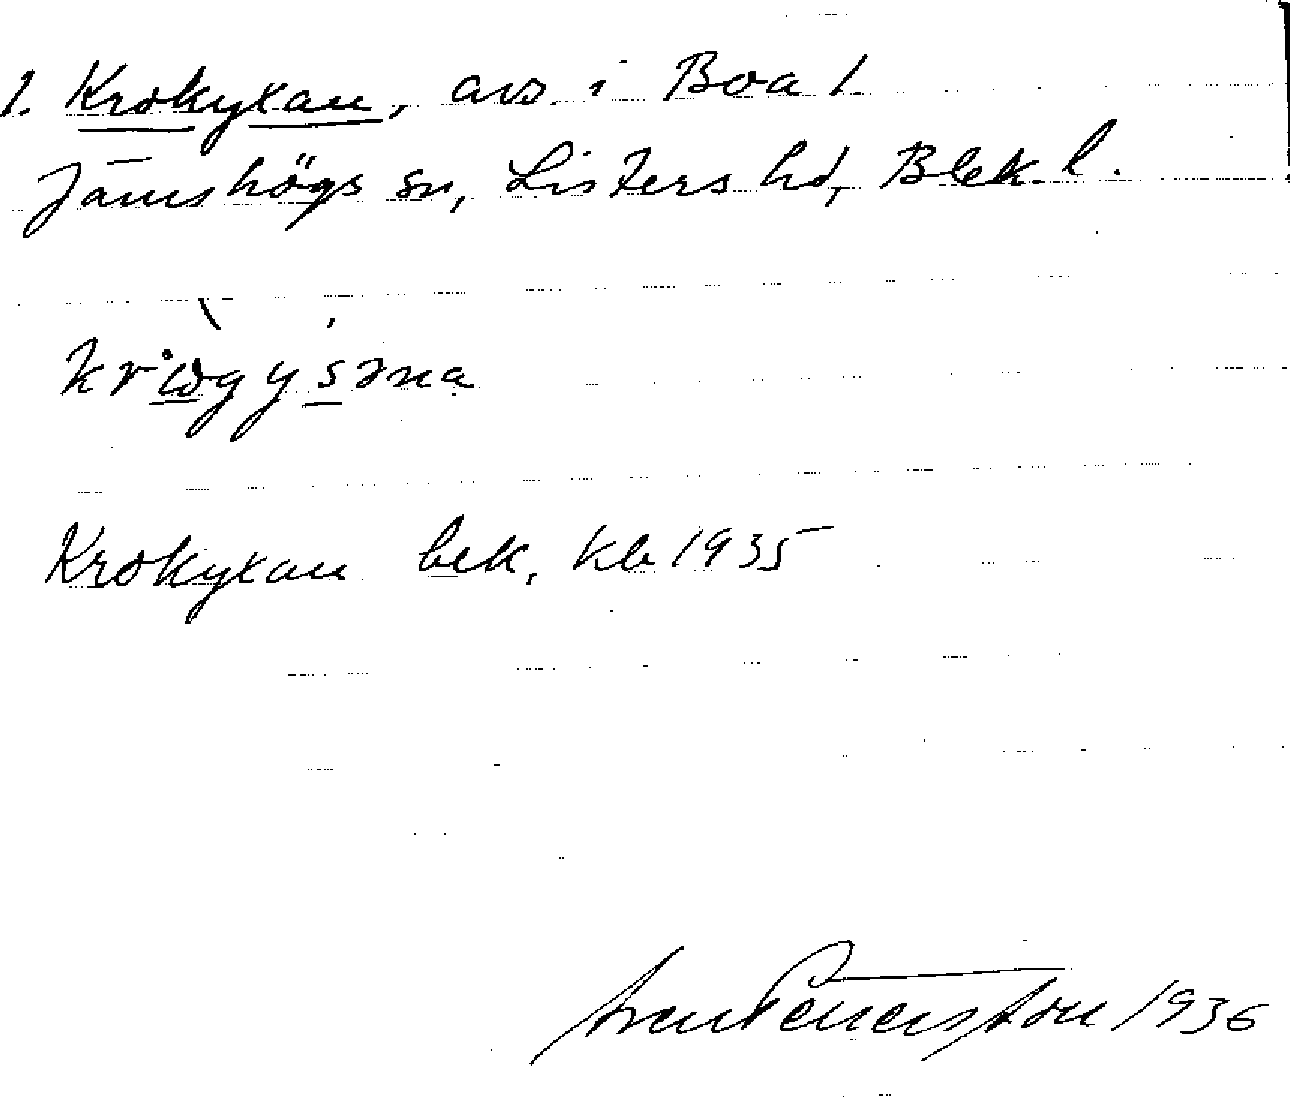 1. Krokyxan, avs. i Boa 1.
Jämshögs sn, Listers hd, Blek. l.
Krokyxan bek. kb 1935
1936